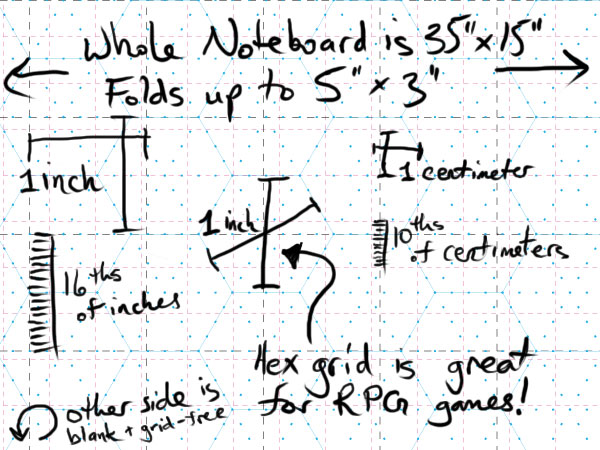 Whole Noteboard is 35" x 15"
Folds up to 5" x 3"
1 inch
1 centimeter
1 inch
16ths
of inches
10ths
of centimeters
Hex grid is great
for RPG games!
other side is
blank + grid-free